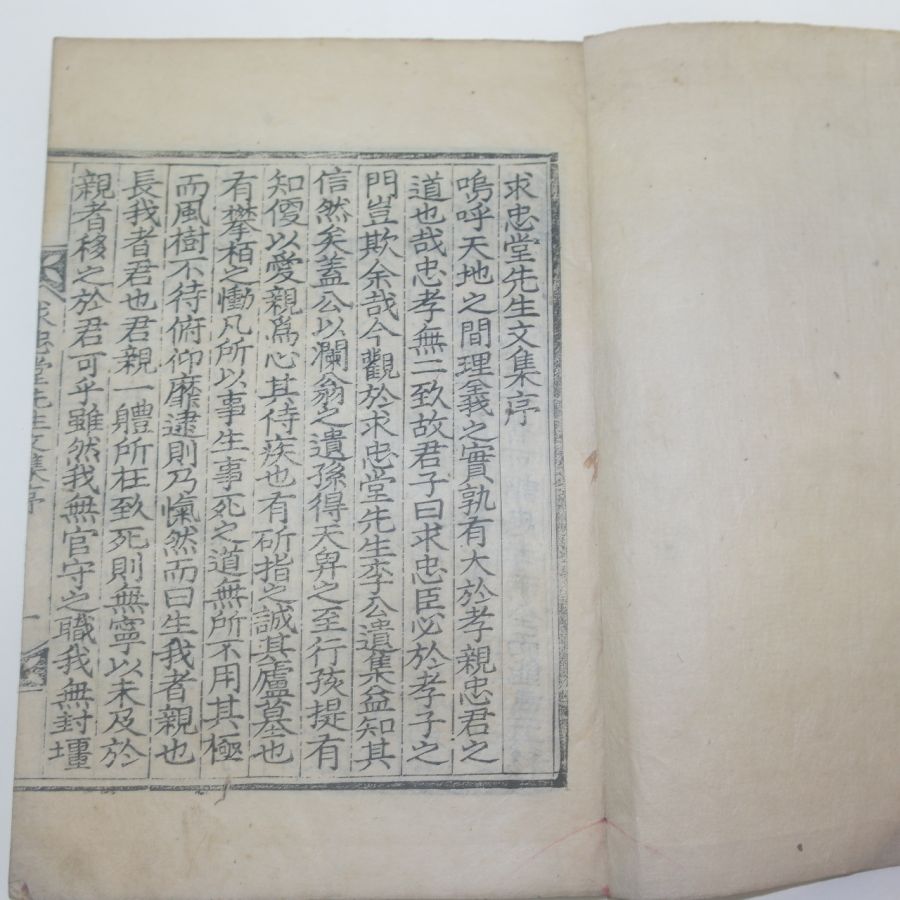 求忠堂先生文集序
嗚呼天地之間理義之實孰有大於孝親忠君之
道也哉忠孝無二致故君子曰求忠臣必於孝子之
門豈欺余哉今觀於求忠堂先生李公遺集益知其
信然矣蓋公以瀾翁之遺孫得天畀之至行孩提有
知便以愛親爲心其侍疾也有斫指之誠其廬墓也
有攀栢之慟凡所以事生事死之道無所不用其極
而風樹不待俯仰靡逮則乃愾然而曰生我者親也
長我者君也君親一體所在致死則無寧以未及於
親者移之於君可乎雖然我無官守之職我無封壃
求忠堂先生文集序
一